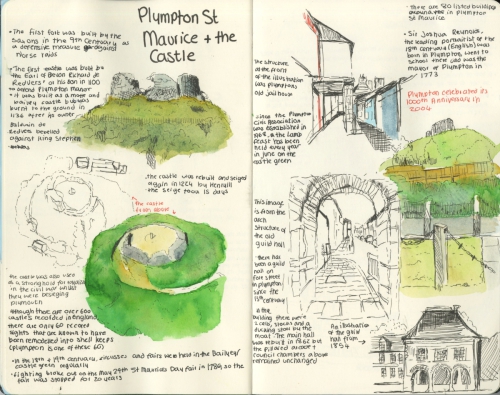 Plympton St
Maurice + the
Castle
• The first fort was built by the
Saxons in the 9th Century as
a defensive measure against
Norse raids
• The first castle was built by
the Earl of Devon Richard de
Redvers or his son in 1100
to defend Plympton Manor
• it was built as a motte and
bailey castle but was
burned to the ground in
1136 after its owner
Baldwin de
Redvers rebelled
against king Stephen
• the castle was rebuilt and seiged
again in 1224 by Henry III
the seige took 15 days
the castle
from above
the castle was also used
as a stronghold for royalists
in the civil war whilst
they were besieging
plymouth
Although there are over 600
castles recorded in england
there are only 60 recent
sights that are known to have
been remodeled into shell keeps
(plympton is one of these 60)
• in the 18th + 19th century, circuses and fairs were held in the Bailey or
castle green regularly
• fighting broke out on the May 29th St Maurices Day fair in 1786 so the
fair was stopped for 20 years
• There are 80 listed buildings
around in plympton
St Maurice
• Sir Joshua Reynolds,
the leading portraitist of the
18th century (English) was
born in Plympton, went to
school there and was the
mayor of Plympton in
1773
Plympton celebrated its
1000th Anniversary in
2004
the structure
at the front
of the
was plymptons
old jail house
since the Plympton
Civic Association
was established in
the Lamb
Feast has been
held every year
in june on the
castle green
This image
is from the
arch
structure of
the old
guild hall
• there has
been a guild
hall on
Fore street
in plympton
since the
century
in the
building there were
2 cells, stocks and a
ducking stool by the
moat. The main hall
was rebuilt in 1862 but
the pillared arcade +
council chambers above
remained unchanged
An illustration
of the guild
hall from